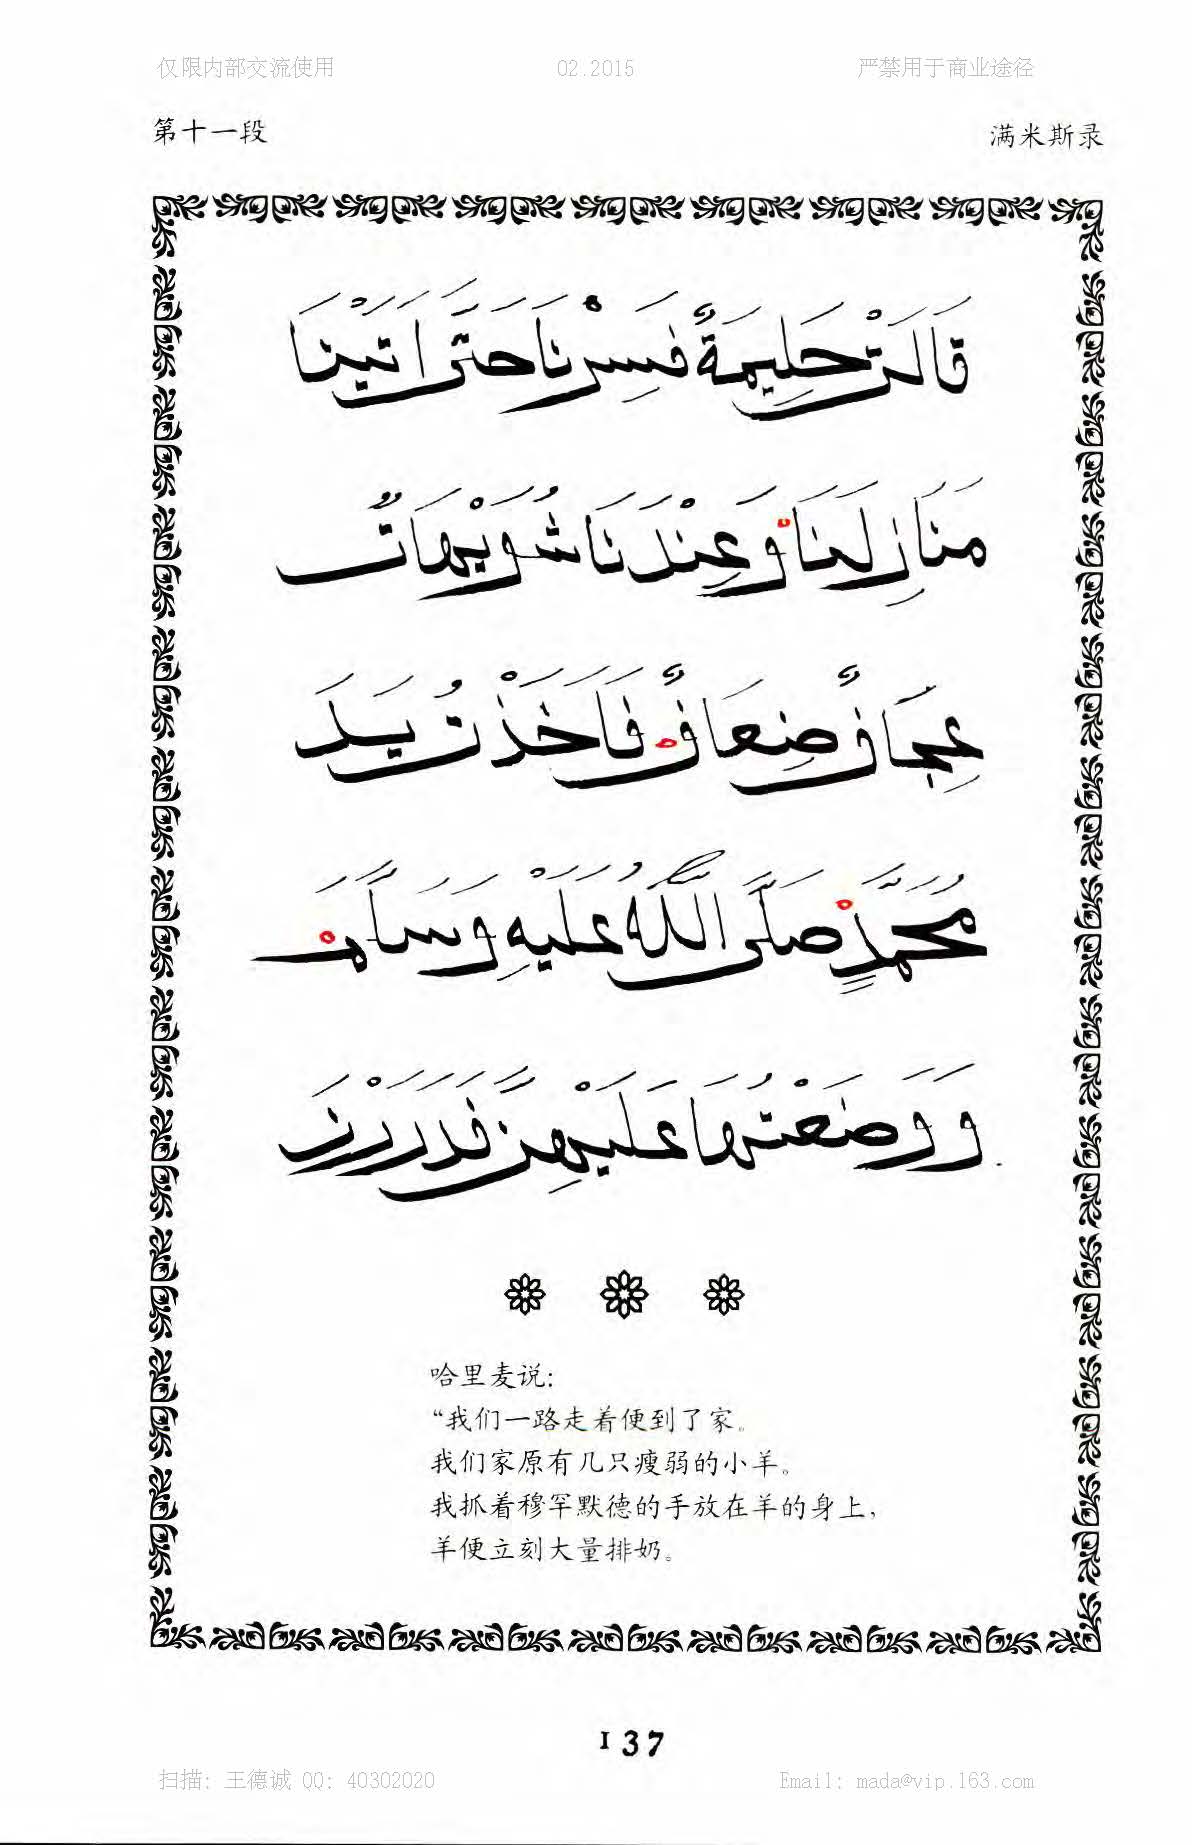 仅限内部交流使用 02.2015 严禁用于商业途径
第十一段 满米斯录
قَالَتْ حَلِيمَةُ فَسِرْنَا حَتَّى اَتَيْنَا
مَنَازِلَنَا وَعِنْدَنَا شُوَيْهَاتٌ
عِجَافٌ ضِعَافٌ فَاَخَذْتُ يَدَ
مُحَمَّدٍ صَلَّى اللّٰهُ عَلَيْهِ وَسَلَّمَ
وَوَضَعْتُهَا عَلَيْهِنَّ فَدَرَرْنَ
哈里麦说：
“我们一路走着便到了家。
我们家原有几只瘦弱的小羊。
我抓着穆罕默德的手放在羊的身上，
羊便立刻大量排奶。
137
扫描: 王德诚 QQ: 40302020 Email: mada@vip.163.com